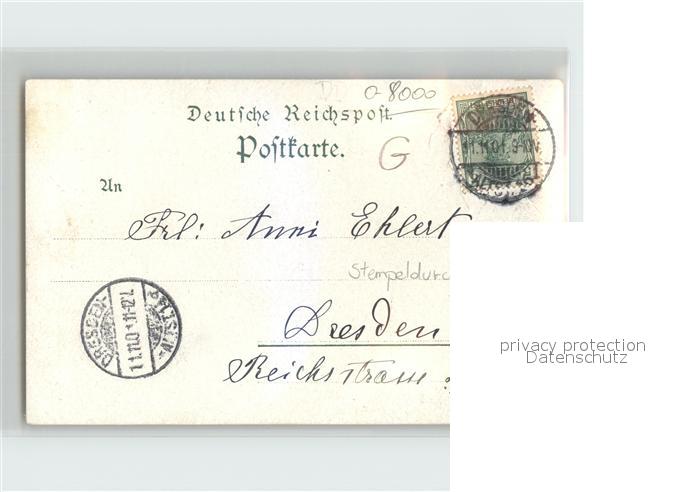 a 8000
Deutsche Reichspost.
Postkarte.
G
An
Frl: Anni Ehlert
Stempeldurc
Dresden
Reichsstrasse
DRESDEN
11.11.01.11-12V.
ALTST.
11.11.01.
privacy protection
Datenschutz